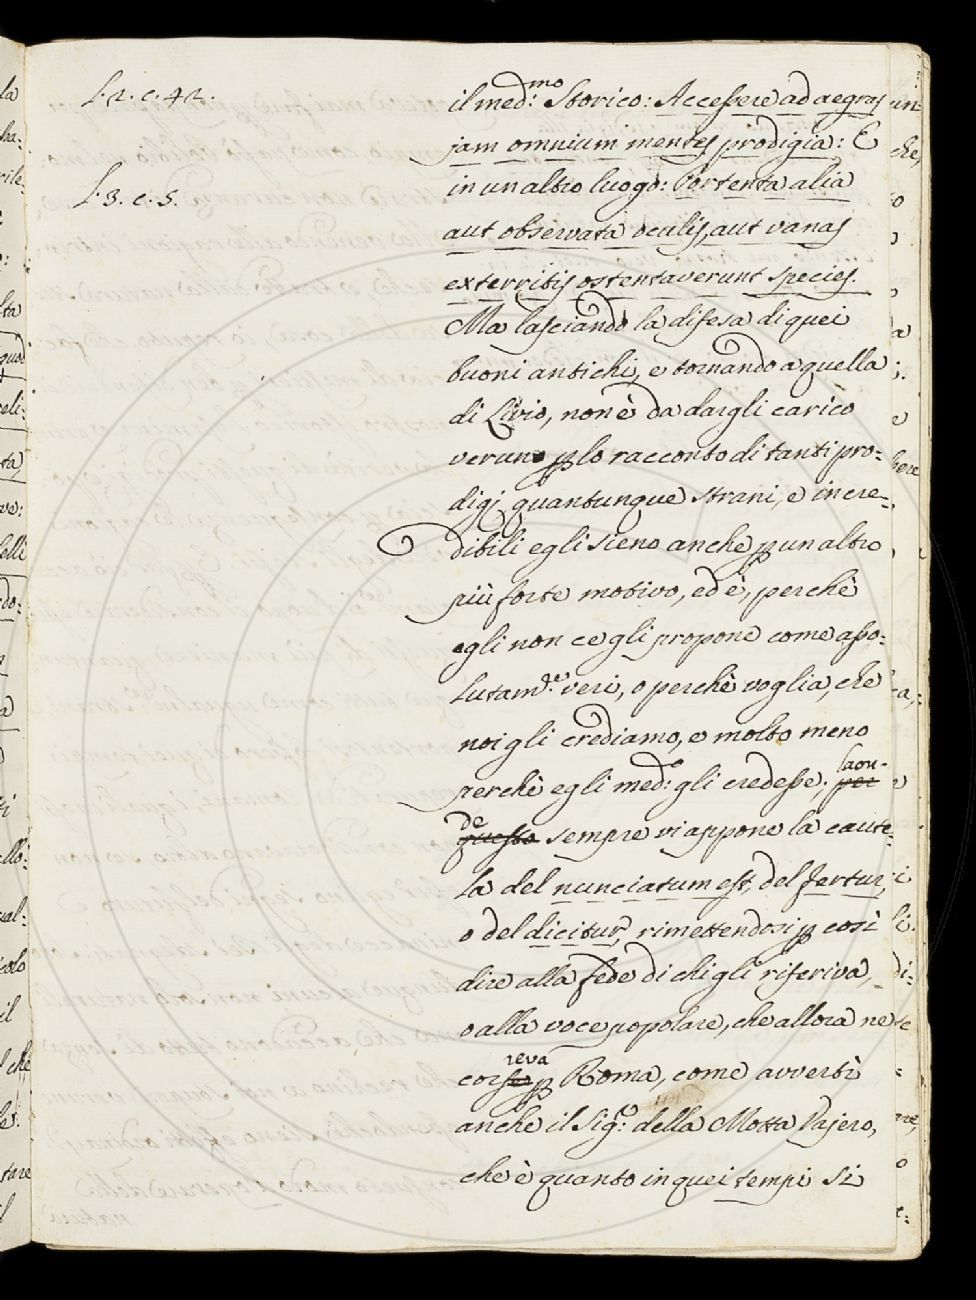 L. 2. c. 42.
il med:mo Storico: Accessere ad aegras
jam omnium mentes prodigia: E
L. 3. c. 5.
in un altro luogo: Portenta alia
aut observata oculis, aut vanas
exterritis ostentaverunt species.
Ma lasciando la difesa di quei
buoni antichi, e tornando a quella
di Livio, non è da dargli carico
veruno p lo racconto di tanti pro=
digj quantunque strani, e incre=
dibili egli sieno anche p un altro
più forte motivo, ed è, perchè
egli non ce gli propone come asso=
lutam.te veri, o perchè voglia, che
noi gli crediamo, e molto meno
perchè egli med:o gli credesse; per laon-
questo de sempre vi appone la caute=
la del nunciatum est, del fertur,
o del dicitur, rimettendosi p così
dire alla fede di chi gli riferiva,
o alla voce popolare, che allora ne
correva p Roma, come avvertì
anche il Sig:e della Motta Vajero,
che è quanto in quei tempi si